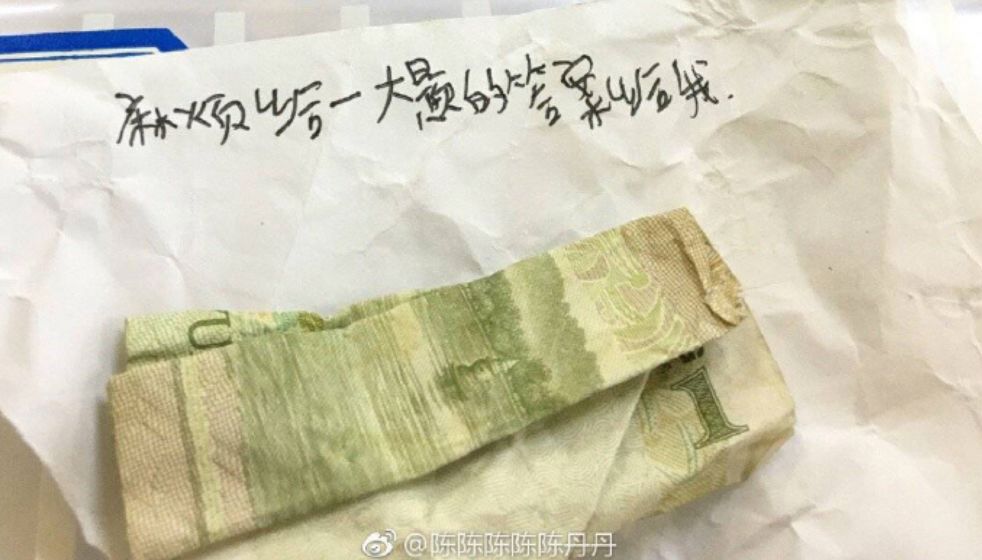 麻烦给一大题的答案给我.
1
@陈陈陈陈陈丹丹